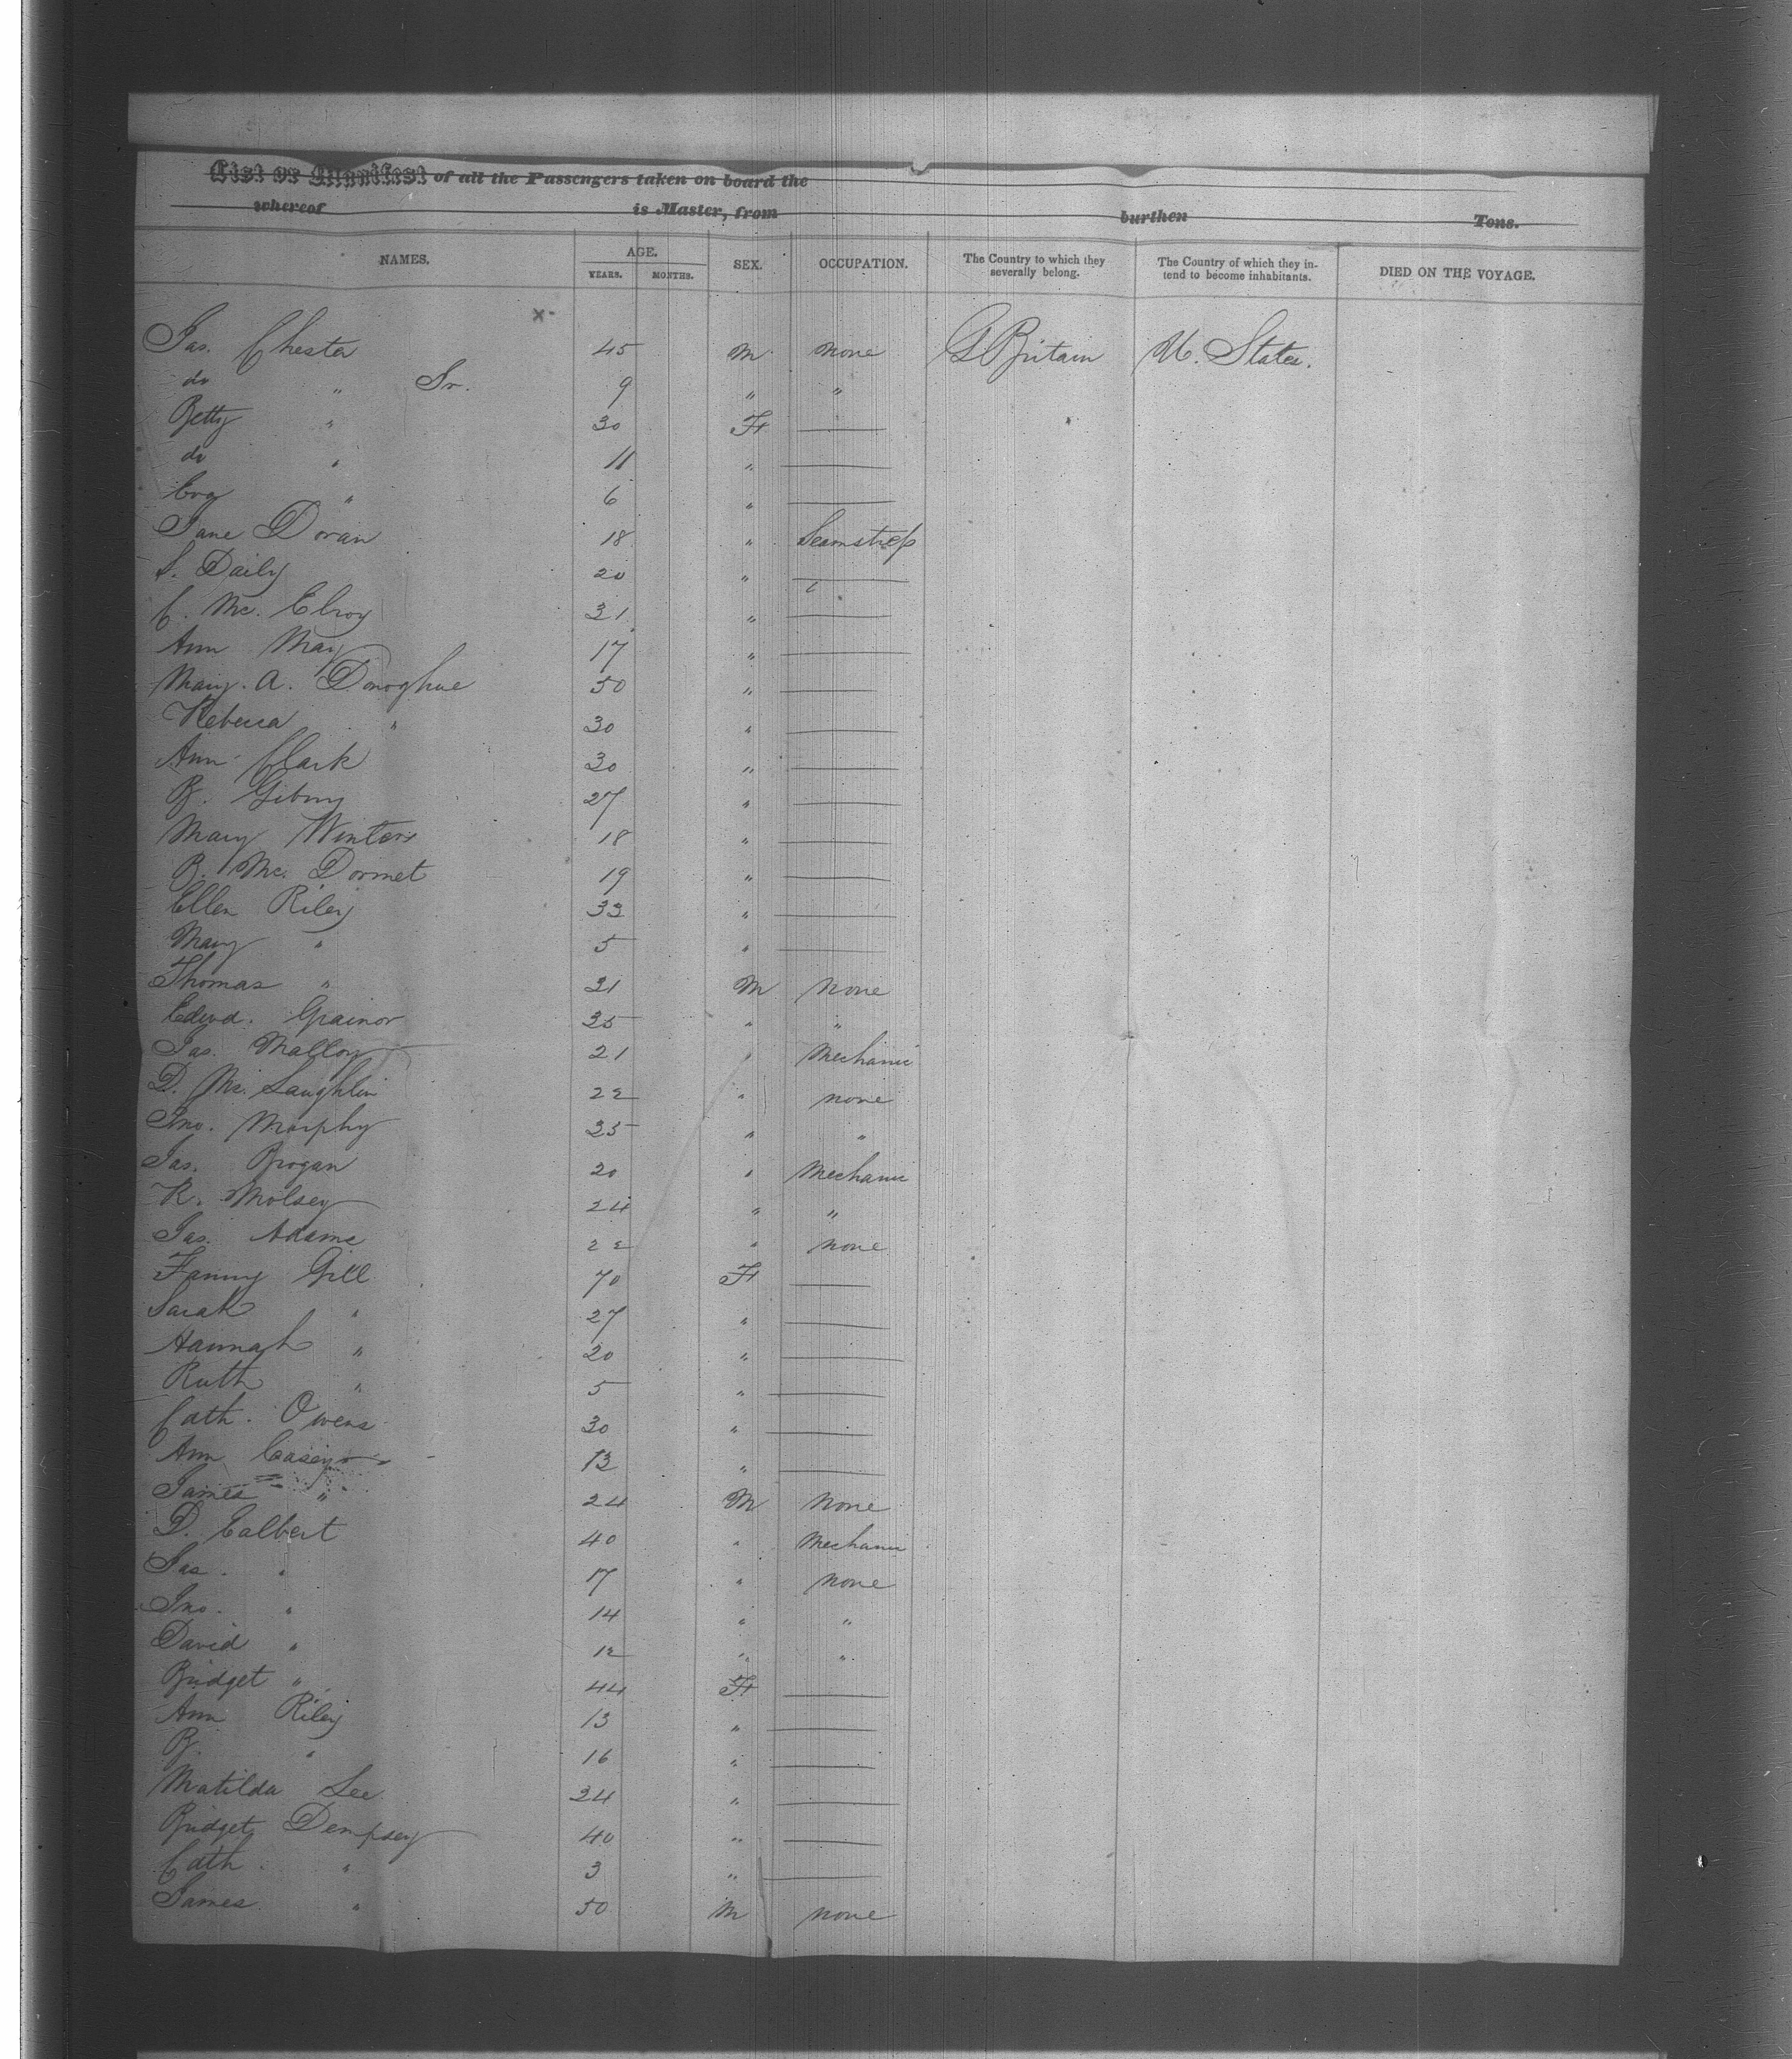 List or Manifest of all the Passengers taken on board the
whereof is Master, from burthen Tons.
NAMES. AGE. YEARS. MONTHS. SEX. OCCUPATION. The Country to which they severally belong. The Country of which they intend to become inhabitants. DIED ON THE VOYAGE.
x
Jas. Chester 45 M none G Britain U. States.
do " Jr. 9 " "
Betty " 30 F
do " 11 "
" 6 "
Jane Doran 18 " Seamstress
S. Daily 20 "
C. Mc. Elroy 31 "
Ann May 17 "
Mary. A. Donoghue 50 "
Rebecca " 30 "
Ann Clark 30 "
B. 27 "
Mary Winters 18 "
B. Mc. Dormet 19 "
Ellen Riley 33 "
Mary " 5 "
Thomas " 31 M none
Edwd. Grainor 35 " "
Jas. Malloy 21 " Mechanic
D. Mc. Laughlin 22 " none
Jno. Murphy 35 " "
Jas. Brogan 20 " Mechanic
R. Molsey 24 " "
Jas. Adams 22 " none
Fanny Gill 70 F
Sarah " 27 "
Hannah " 20 "
Ruth " 5 "
Cath. Owens 30 "
Ann Casey 13 "
James " 24 M none
D. Calbert 40 " Mechanic
Jas. " 17 " none
Jno. " 14 " "
David " 12 " "
Bridget " 44 F
Ann Riley 13 "
B. " 16 "
Matilda Lee 34 "
Bridget Dempsey 40 "
Cath. " 3 "
James " 50 M none